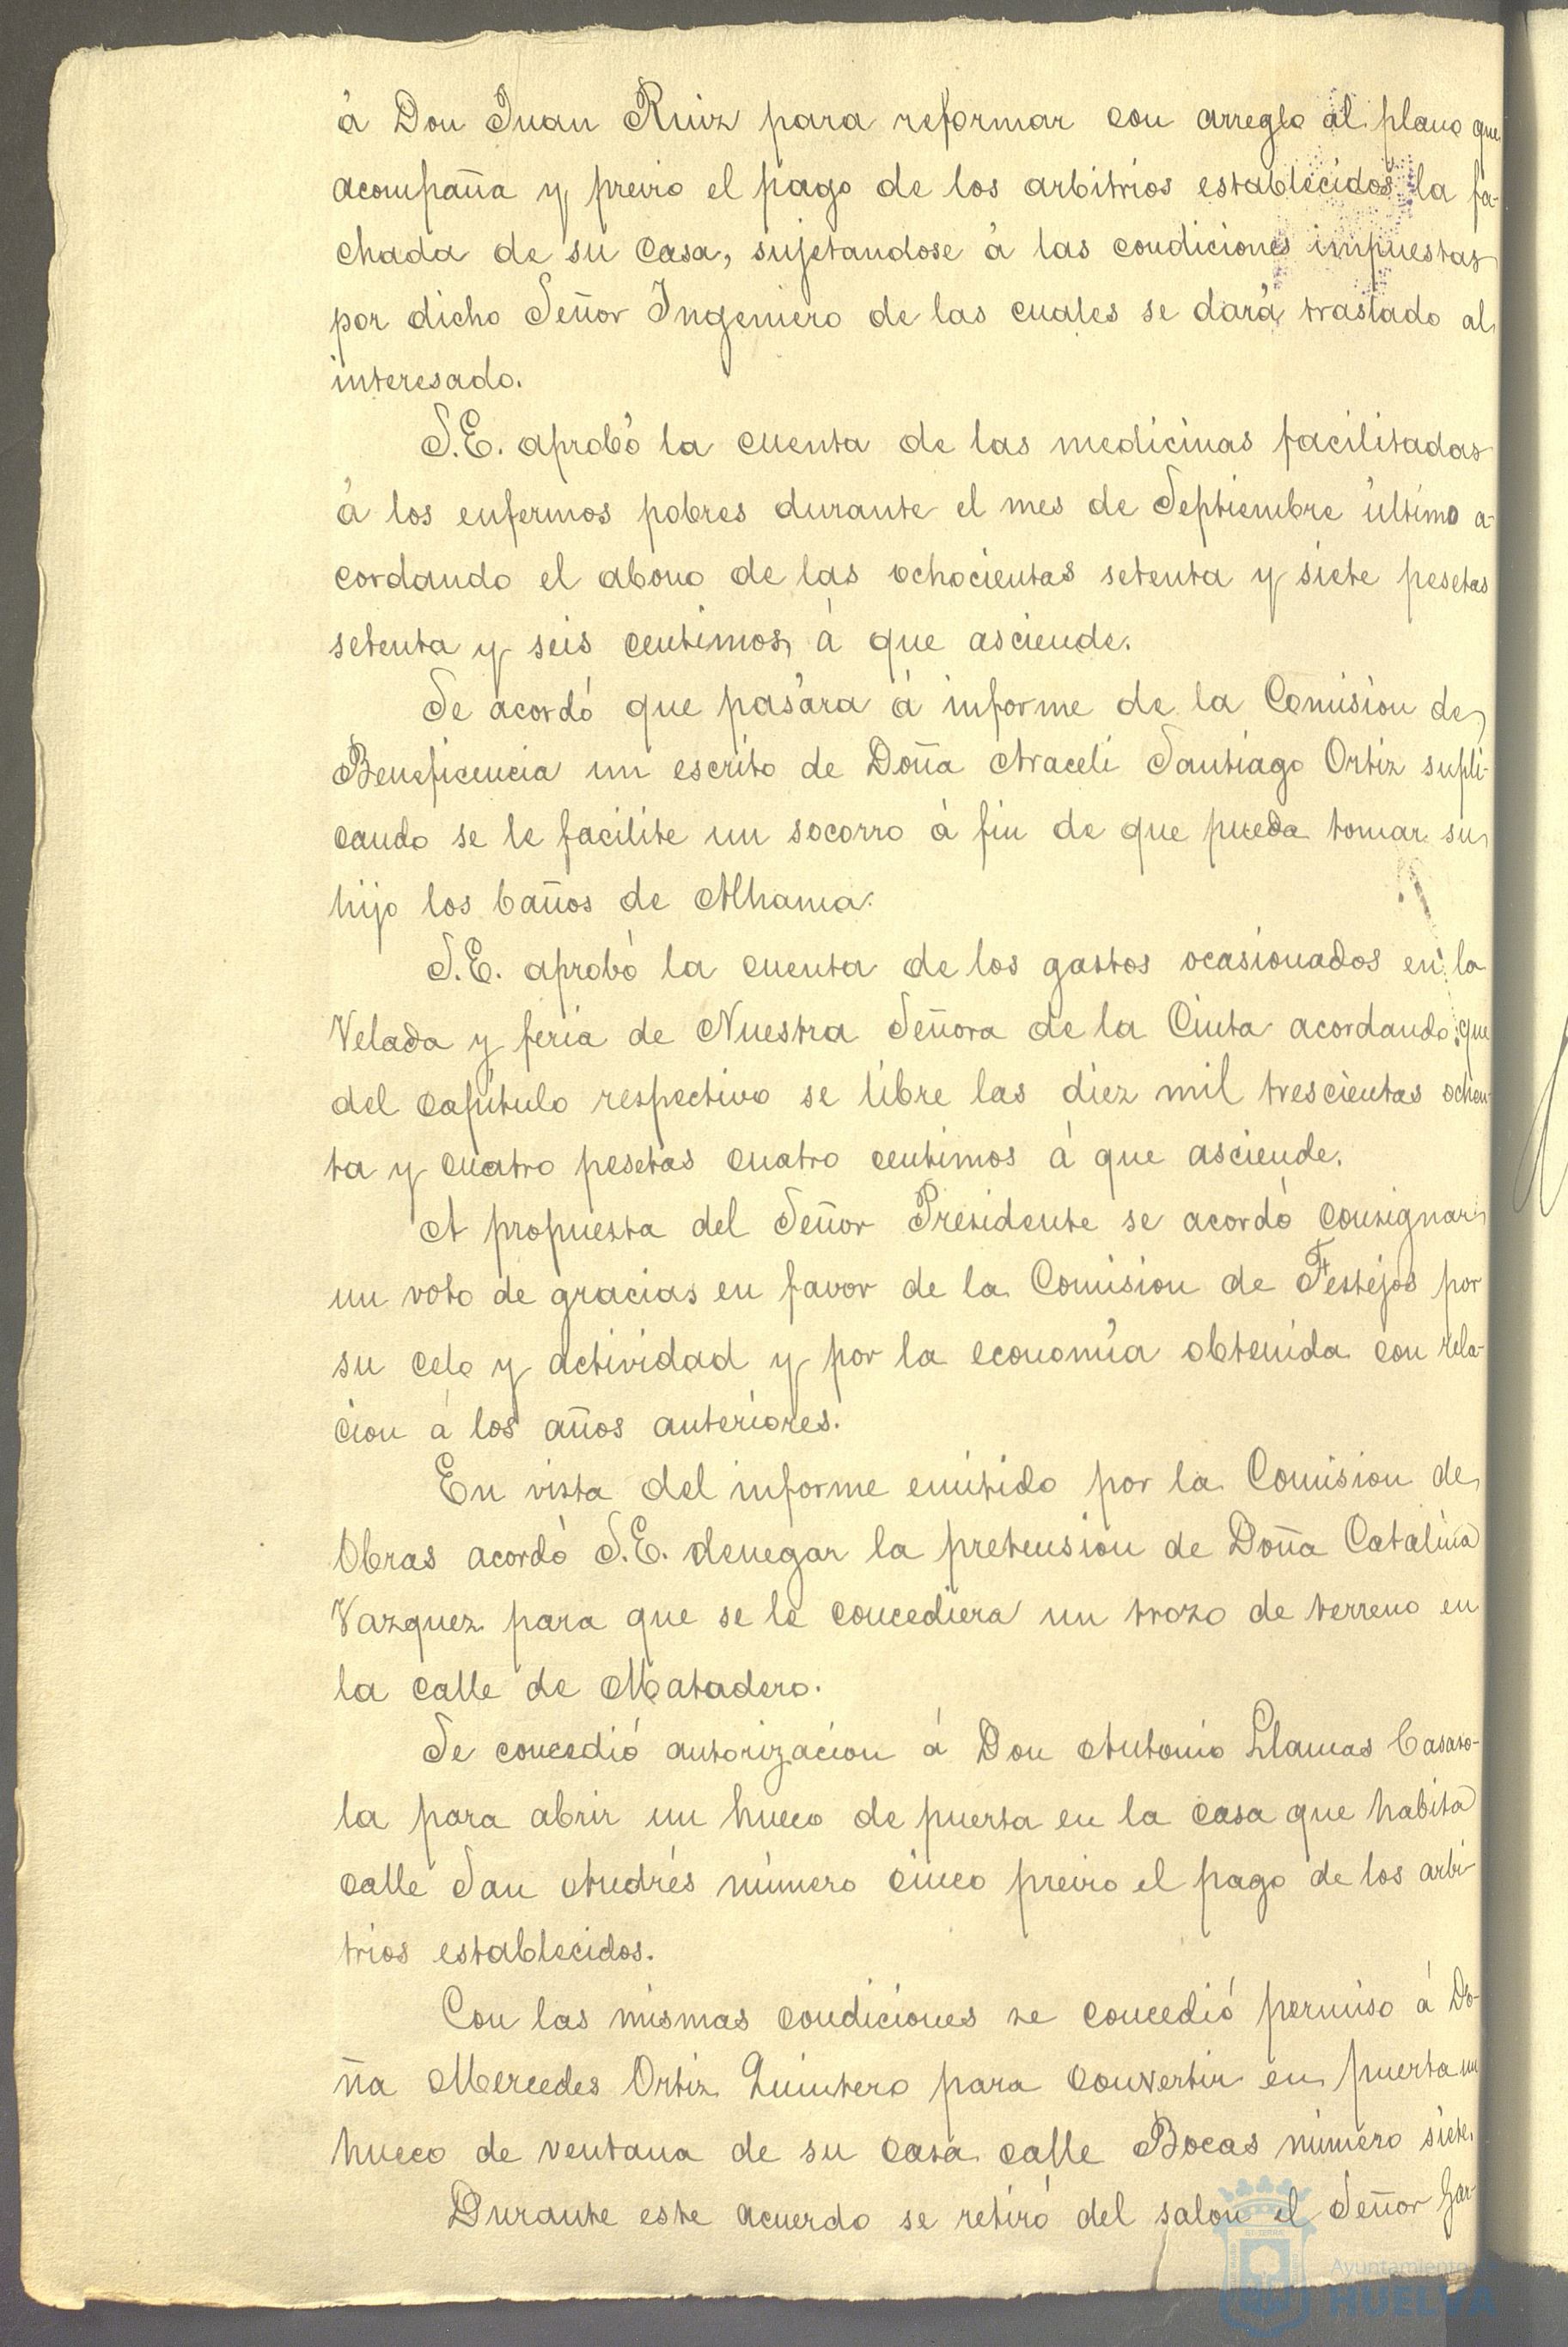 á Don Juan Ruiz para reformar con arreglo al plano que
acompaña y previo el pago de los arbitrios establecidos la fa-
chada de su casa, sujetandose á las condiciones impuestas
por dicho Señor Ingeniero de las cuales se dará traslado al
interesado.
S.E. aprobó la cuenta de las medicinas facilitadas
á los enfermos pobres durante el mes de Septiembre último a-
cordando el abono de las ochocientas setenta y siete pesetas
setenta y seis centimos á que asciende.
Se acordó que pasára á informe de la Comision de
Beneficencia un escrito de Doña Araceli Santiago Ortiz supli-
cando se le facilite un socorro á fin de que pueda tomar su
hijo los baños de Alhama.
S.E. aprobó la cuenta de los gastos ocasionados en la
Velada y feria de Nuestra Señora de la Cinta acordando que
del capítulo respectivo se libre las diez mil trescientas ochen-
ta y cuatro pesetas cuatro centimos á que asciende.
A propuesta del Señor Presidente se acordó consignar
un voto de gracias en favor de la Comision de Festejos por
su celo y actividad y por la economía obtenida con rela-
cion á los años anteriores.
En vista del informe emitido por la Comision de
Obras acordó S.E. denegar la pretension de Doña Catalina
Vazquez para que se le concediera un trozo de terreno en
la calle de Matadero.
Se concedió autorizacion á Don Antonio Llamas Casaso-
la para abrir un hueco de puerta en la casa que habita
calle San Andrés número cinco previo el pago de los arbi-
trios establecidos.
Con las mismas condiciones se concedió permiso á Do-
ña Mercedes Ortiz Quintero para convertir en puerta un
hueco de ventana de su casa calle Bocas número siete.
Durante este acuerdo se retiró del salon el Señor Gar-
Ayuntamiento
HUELVA